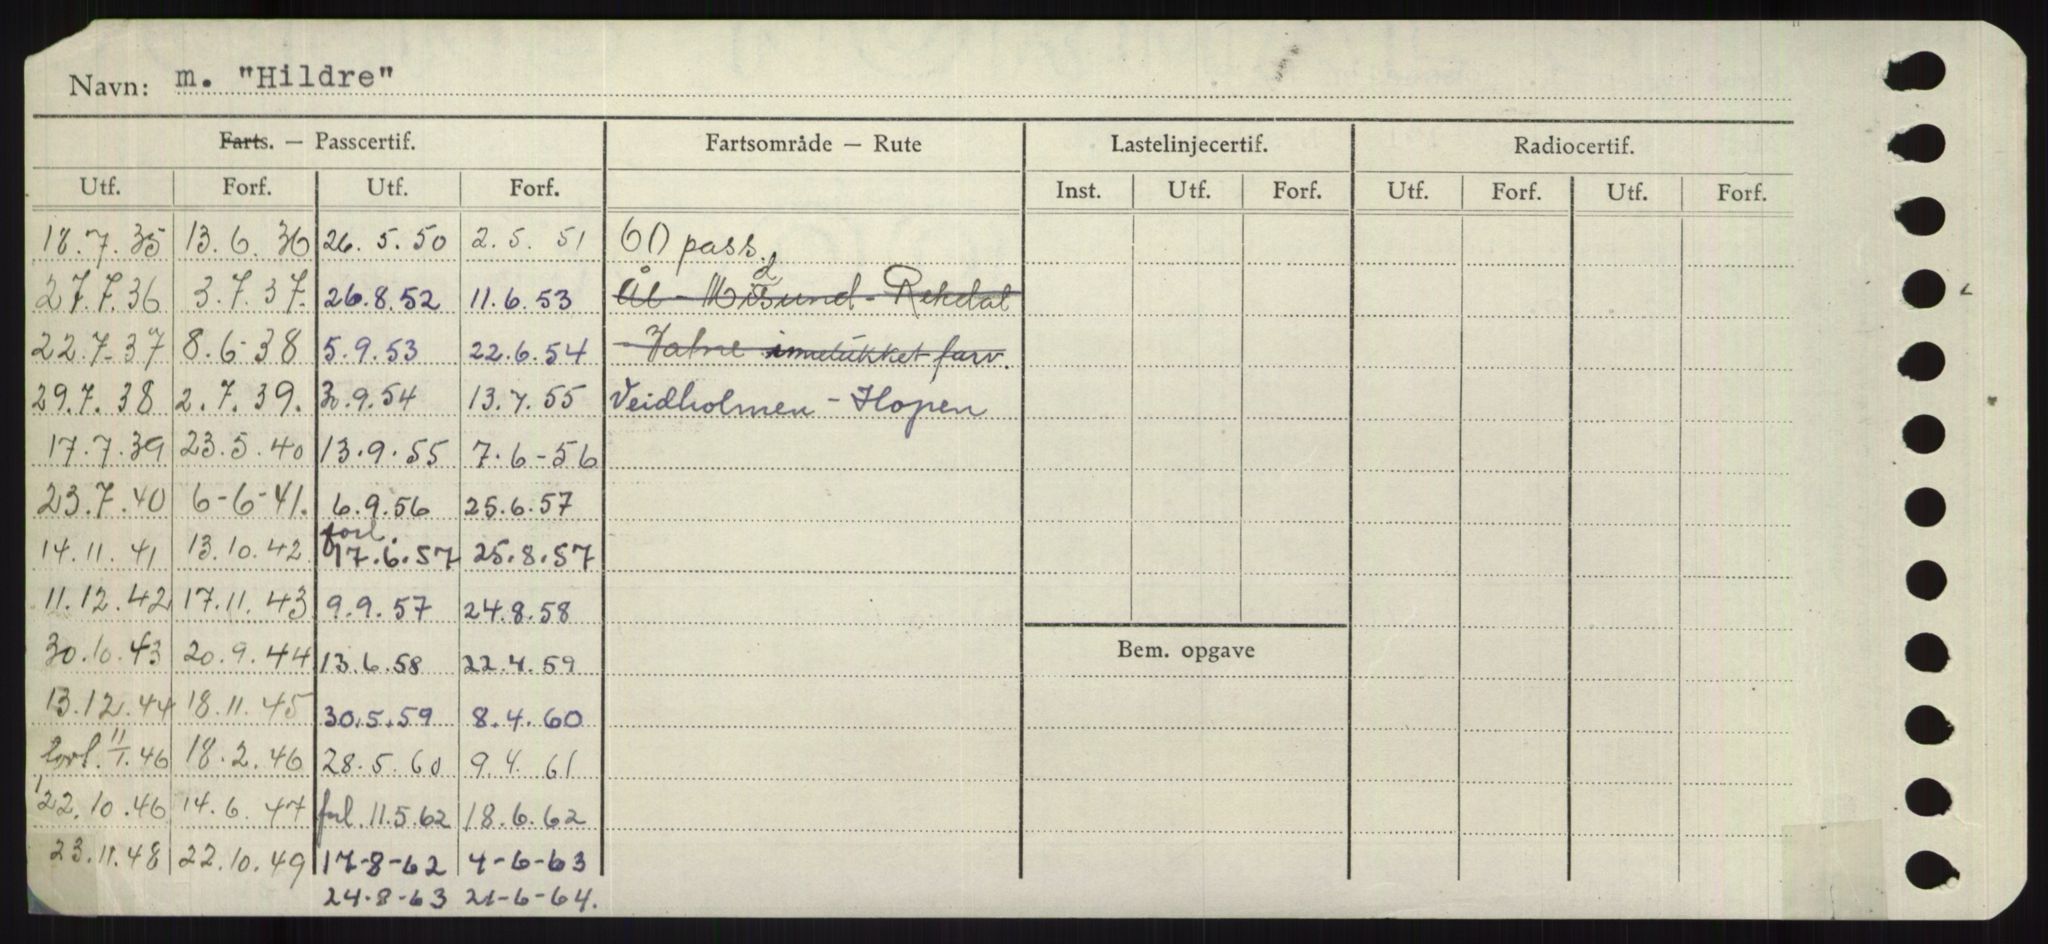 Navn: m. "Hildre"
Farts. — Passcertif. Fartsområde — Rute Lastelinjecertif. Radiocertif.
Utf. Forf. Utf. Forf. Inst. Utf. Forf. Utf. Forf. Utf. Forf.
18.7.35 13.6.36 26.5.50 2.5.51 60 pass.
27.7.36 3.7.37. 26.8.52 11.6.53 Ål - Midsund - Rekdal
22.7.37 8.6-38 5.9.53 22.6.54 - Vatne innelukket farv.
29.7.38 2.7.39. 3.9.54 13.7.55 Veidholmen - Hopen
17.7.39 23.5.40 13.9.55 7.6-56
23.7.40 6-6-41. 6.9.56 25.6.57
14.11.41 13.10.42 forl. 17.6.57 25.8.57
11.12.42 17.11.43 9.9.57 24.8.58
30.10.43 20.9.44 13.6.58 22.4.59 Bem. opgave
13.12.44 18.11.45 30.5.59 8.4.60
forl. 11/1.46 18.2.46 28.5.60 9.4.61
22.10.46 14.6.47 forl. 11.5.62 18.6.62
23.11.48 22.10.49 17-8-62 4-6-63
24-8-63 21-6-64.